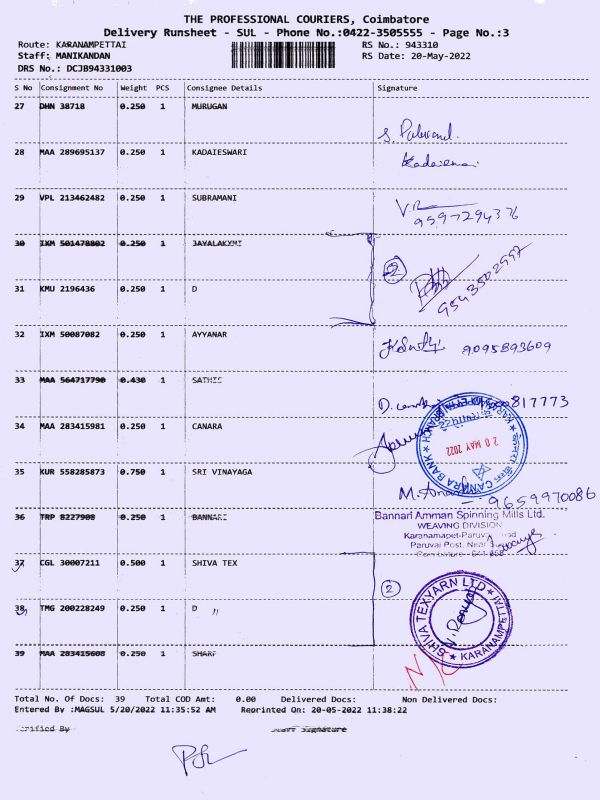 THE PROFESSIONAL COURIERS, Coimbatore
Delivery Runsheet - SUL - Phone No.:0422-3505555 - Page No.:3
Route: KARANAMPETTAI RS No.: 943310
Staff: MANIKANDAN RS Date: 20-May-2022
DRS No.: DCJB94331003
S No Consignment No Weight PCS Consignee Details Signature
27 DHN 38718 0.250 1 MURUGAN
28 MAA 289695137 0.250 1 KADAIESWARI
29 VPL 213462482 0.250 1 SUBRAMANI
9597294376
30 IXM 501478802 0.250 1 JAYALAKXMI
2
31 KMU 2196436 0.250 1 D
9543502997
32 IXM 50087082 0.250 1 AYYANAR
9095893609
33 MAA 564717790 0.430 1 SATHIS
817773
34 MAA 283415981 0.250 1 CANARA
CANARA BANK
20 MAY 2022
35 KUR 558285873 0.750 1 SRI VINAYAGA
9659970086
36 TRP 8227908 0.250 1 BANNARI
Bannari Amman Spinning Mills Ltd.
WEAVING DIVISION
Paruvai Post, Near
37 CGL 30007211 0.500 1 SHIVA TEX
2
38 TMG 200228249 0.250 1 D "
SHIVA TEXYARN LTD
KARANAMPETTAI
39 MAA 283415608 0.250 1 SHARP
Total No. Of Docs: 39 Total COD Amt: 0.00 Delivered Docs: Non Delivered Docs:
Entered By :MAGSUL 5/20/2022 11:35:52 AM Reprinted On: 20-05-2022 11:38:22
Staff Signature